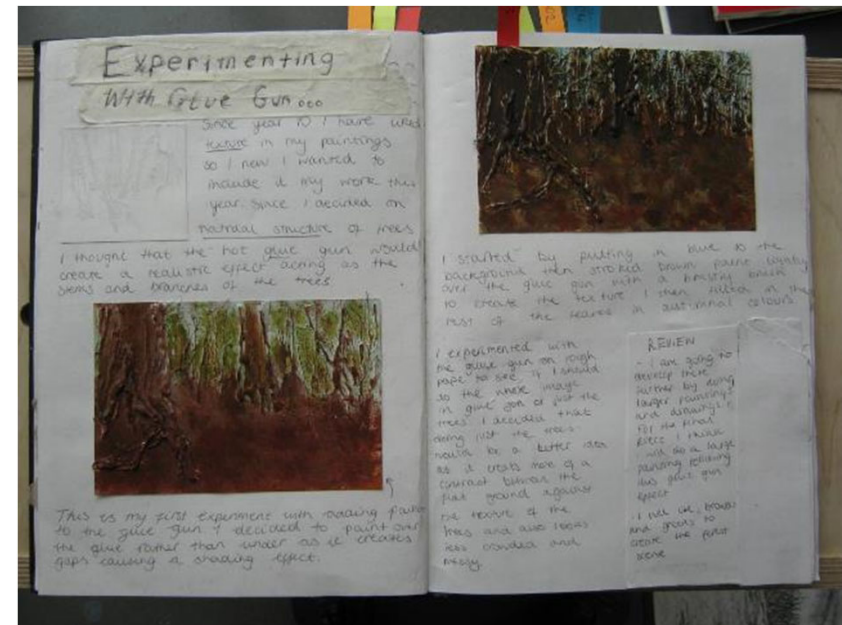 Experimenting
With Glue Gun...
Since year 10 I have used
texture in my paintings
so I new I wanted to
include it my work this
year. Since I decided on
natural structure of trees
I thought that the hot glue gun would
create a realistic effect acting as the
stems and branches of the trees.
This is my first experiment with adding paint
to the glue gun I decided to paint over
the glue rather than under as it creates
gaps causing a shading effect.
I started by putting in blue to the
background then stroked brown paint lightly
over the glue gun with a bristly brush
to create the texture I then filled in the
rest of the leaves in autumnal colours.
I experimented with
the glue gun on rough
paper to see if I should
do the whole image
in glue gun or just the
trees. I decided that
doing just the trees
would be a better idea
as it creates more of a
contrast between the
flat ground against
the texture of the
trees and also looks
less crowded and
messy.
REVIEW
- I am going to
develop these
further by doing
larger paintings
and drawings.
For the final
piece I think
I will do a large
painting following
this glue gun
effect
I will use browns
and greens to
create the forest
scene